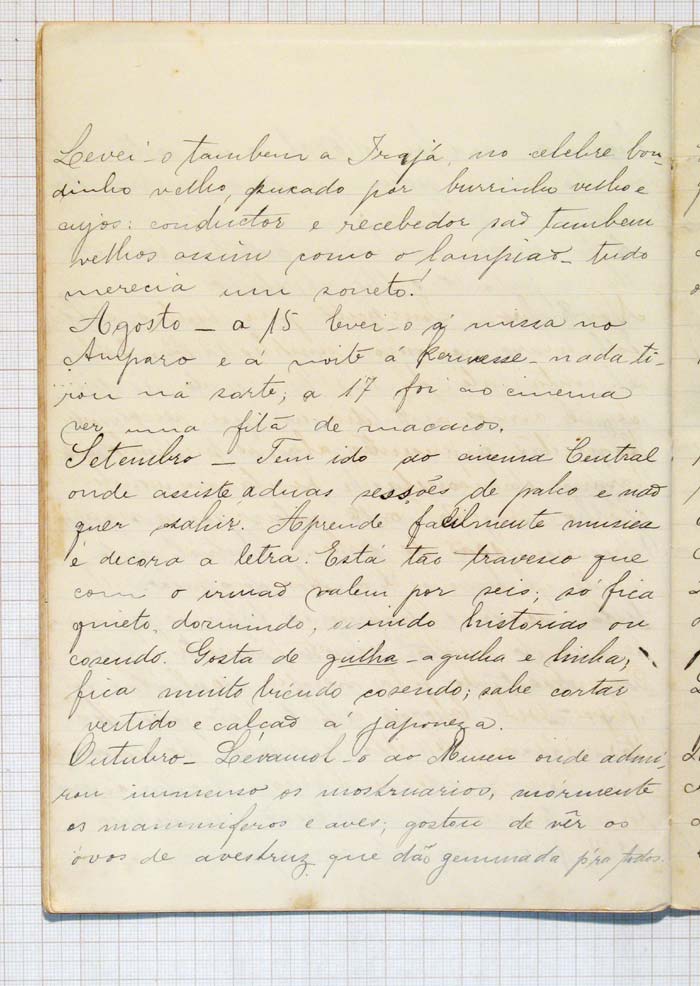 Levei-o tambem a Irajá, no celebre bon-
dinho velho, puxado por burrinho velho e
cujos: conductor e recebedor saõ tambem
velhos assim como o lampiaõ - tudo
merecia um soneto!
Agosto - a 15 levei-o á missa no
Amparo e á noite á Kermesse - nada ti-
rou na sorte; a 17 foi ao cinema
ver uma fita de macacos.
Setembro - Tem ido ao cinema Central
onde assiste a duas sessões de palco e naõ
quer sahir. Aprende facilmente musica
e decora a letra. Está taõ travesso que
com o irmaõ valem por seis; só fica
quieto, dormindo, ouvindo historias ou
cosendo. Gosta de gulha - agulha e linha;
fica muito bicudo cosendo; sabe cortar
vestido e calçaõ á japoneza.
Outubro - Lévamol-o ao Museu onde admi-
rou immenso os mostruarios, mórmente
os mammiferos e aves; gostou de vêr os
óvos de avestruz que dão gemmada p'ra todos.